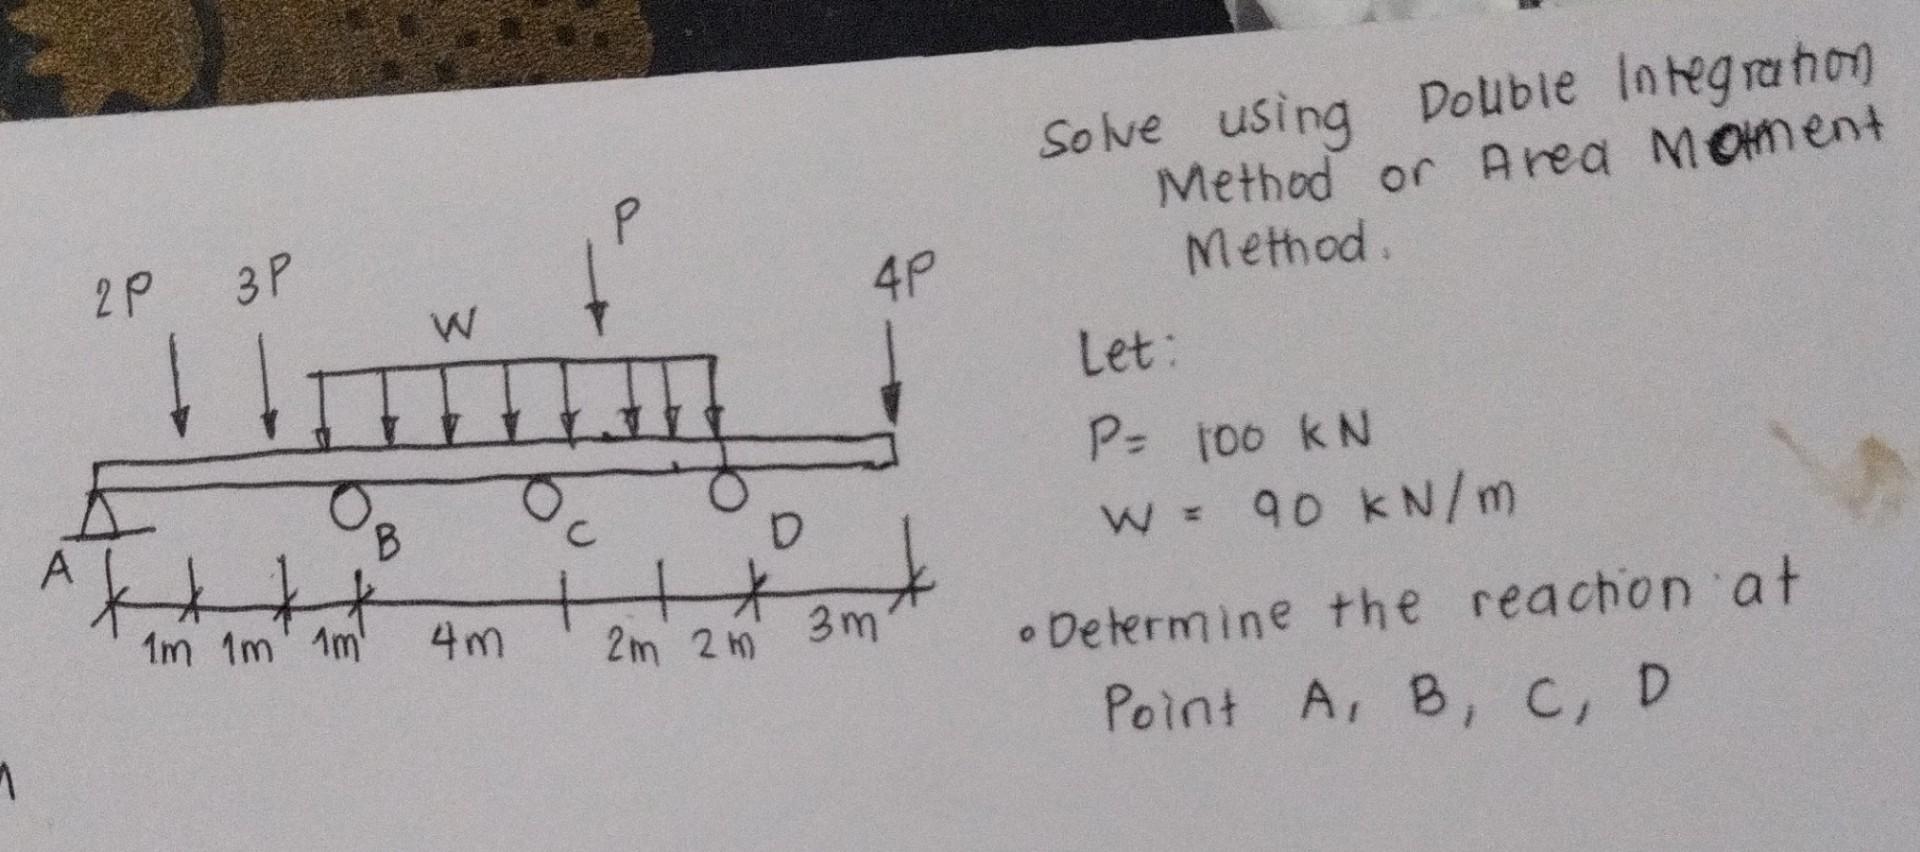 Solve using Double Integration
Method or Area Moment
Method.
2P 3P W P 4P
Let:
P= 100 KN
W = 90 KN/m
A B C D
1m 1m 1m 4m 2m 2m 3m
• Determine the reaction at
Point A, B, C, D